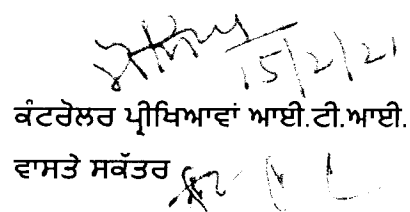 15/2/21
ਕੰਟਰੋਲਰ ਪ੍ਰੀਖਿਆਵਾਂ ਆਈ.ਟੀ.ਆਈ.
ਵਾਸਤੇ ਸਕੱਤਰ